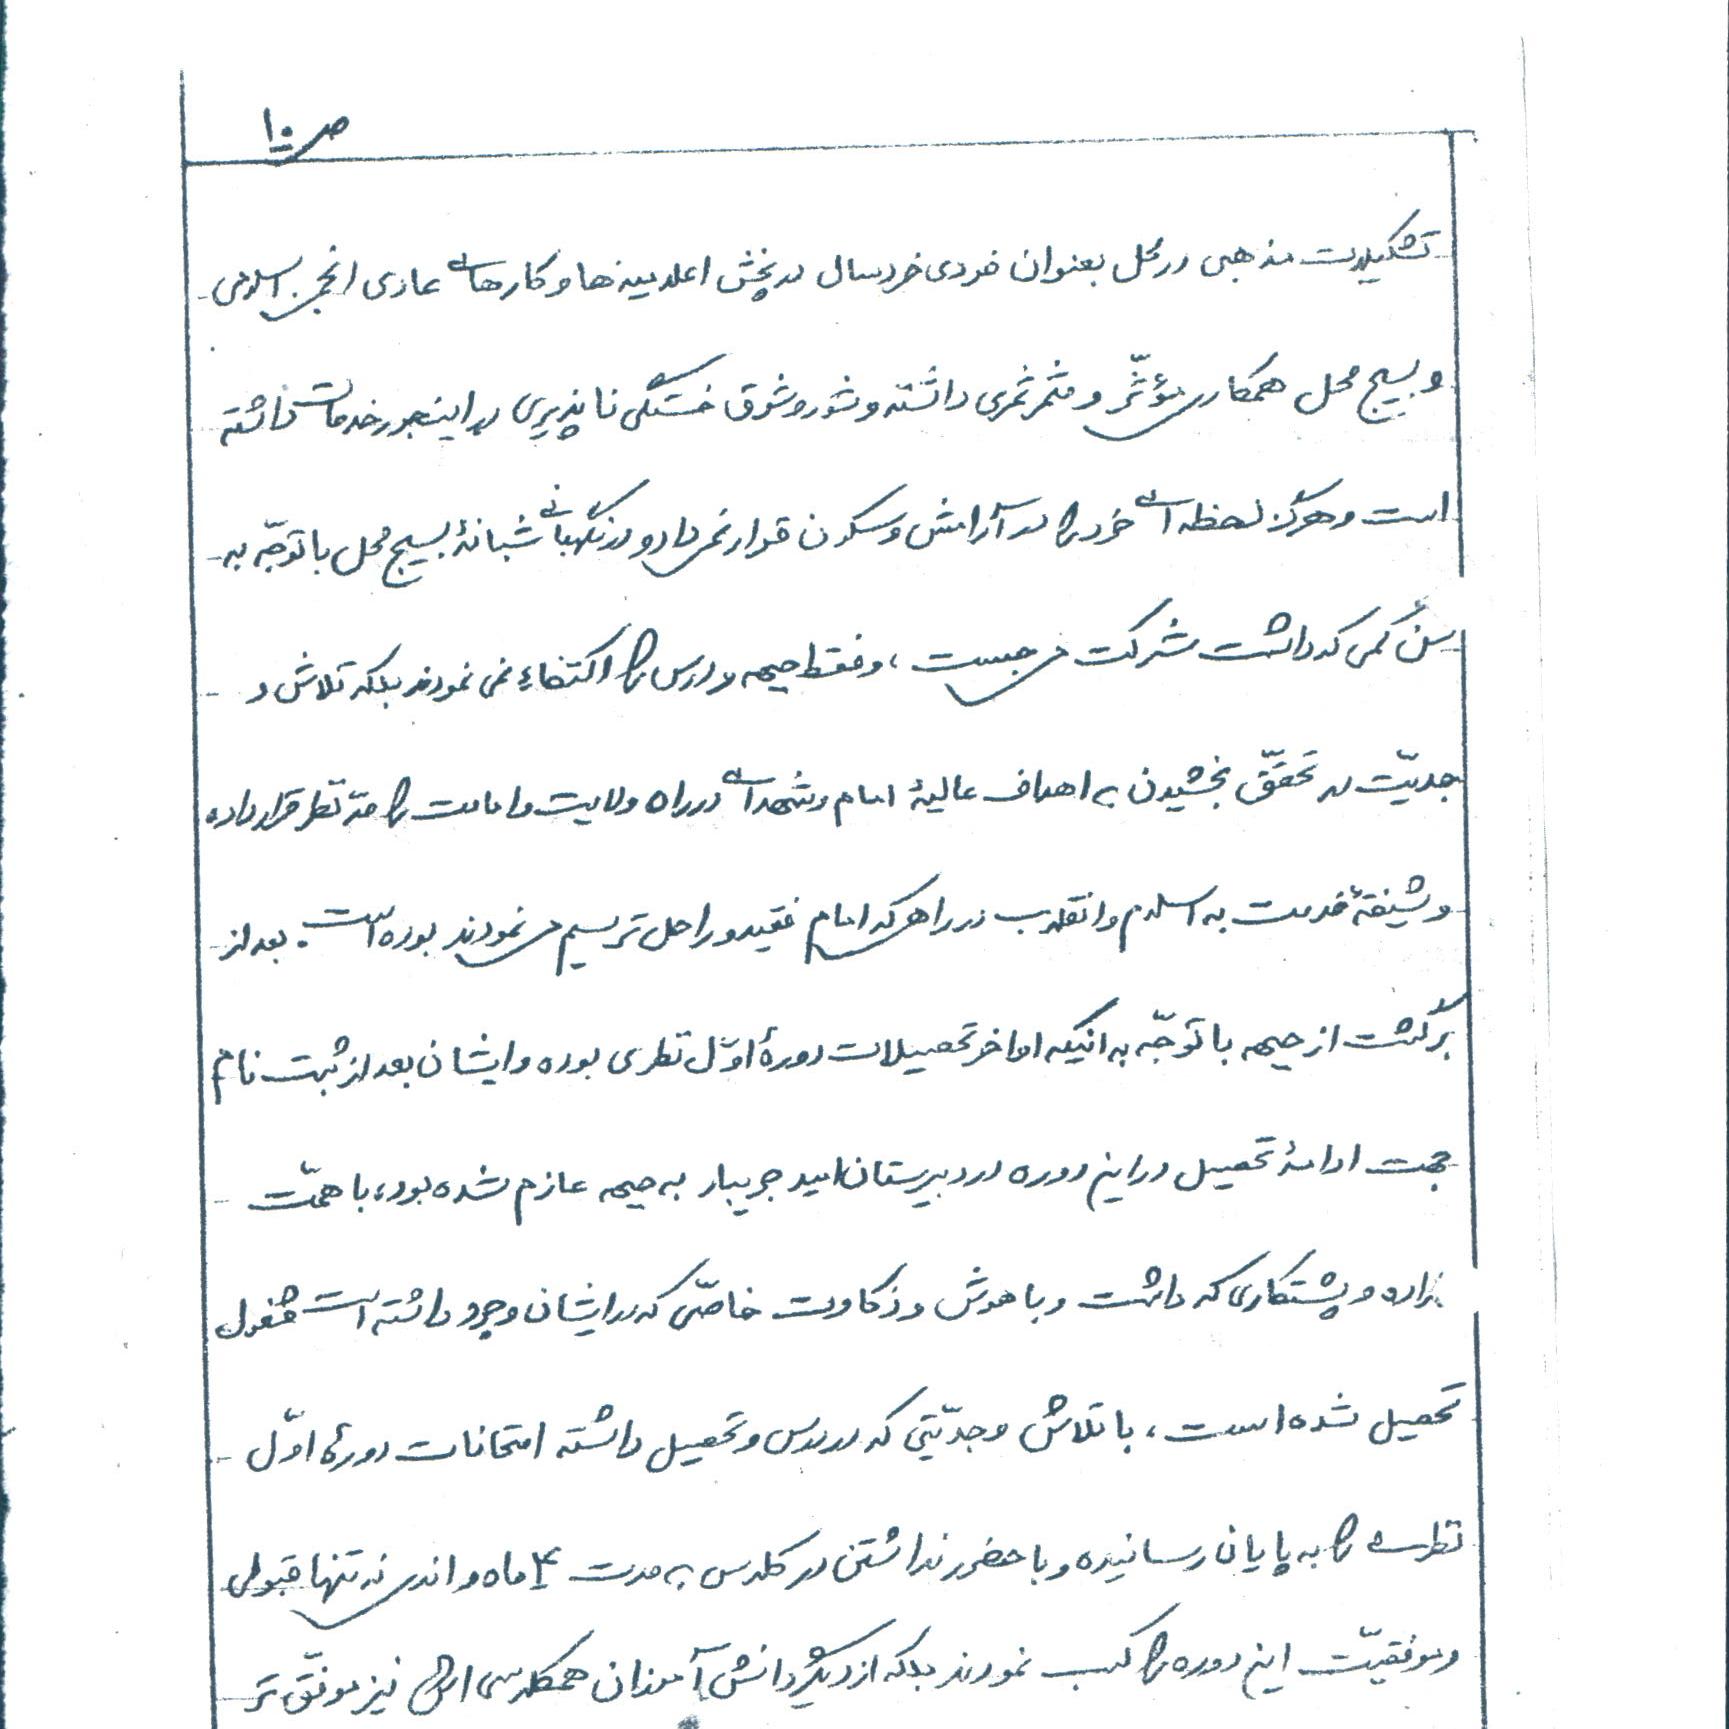 ص ۱۰
تشکیلات مذهبی در محل بعنوان فردی خردسال در پخش اعلامیه ها و کارهای عادی انجمن اسلامی
و بسیج محل همکاری مؤثّر و مثمر ثمری داشته و شور و شوق خستگی ناپذیری در اینجور خدمات داشته
است و هرگز لحظه ای خود را در آرامش و سکون قرار نمی داد و در نگهبانی شبانهٔ بسیج محل با توجّه به
سنّ کمی که داشت شرکت می جست ، و فقط جبهه و درس را اکتفاء نمی نمودند بلکه تلاش و
جدیّت در تحقّق بخشیدن به اهداف عالیهٔ امام و شهدای در راه ولایت و امامت را مدّ نظر قرار داده
و شیفتهٔ خدمت به اسلام و انقلاب در راهی که امام فقید و راحل ترسیم می نمودند بوده است . بعد از
برگشت از جبهه با توجّه به اینکه اواخر تحصیلات دورهٔ اوّل نظری بوده و ایشان بعد از ثبت نام
جهت ادامهٔ تحصیل در این دوره در دبیرستان امید جویبار به جبهه عازم شده بود، با همّت
اراده و پشتکاری که داشت و با هوش و ذکاوت خاصّی که در ایشان وجود داشته است مشغول
تحصیل شده است ، با تلاش و جدیّتی که در درس و تحصیل داشته امتحانات دورهٔ اوّل
نظری را به پایان رسانیده و با حضور نداشتن در کلاس به مدت ۴ ماه و اندی نه تنها قبولی
و موفقیّت این دوره را کسب نمودند بلکه از دیگر دانش آموزان همکلاسی اش نیز موفّق تر